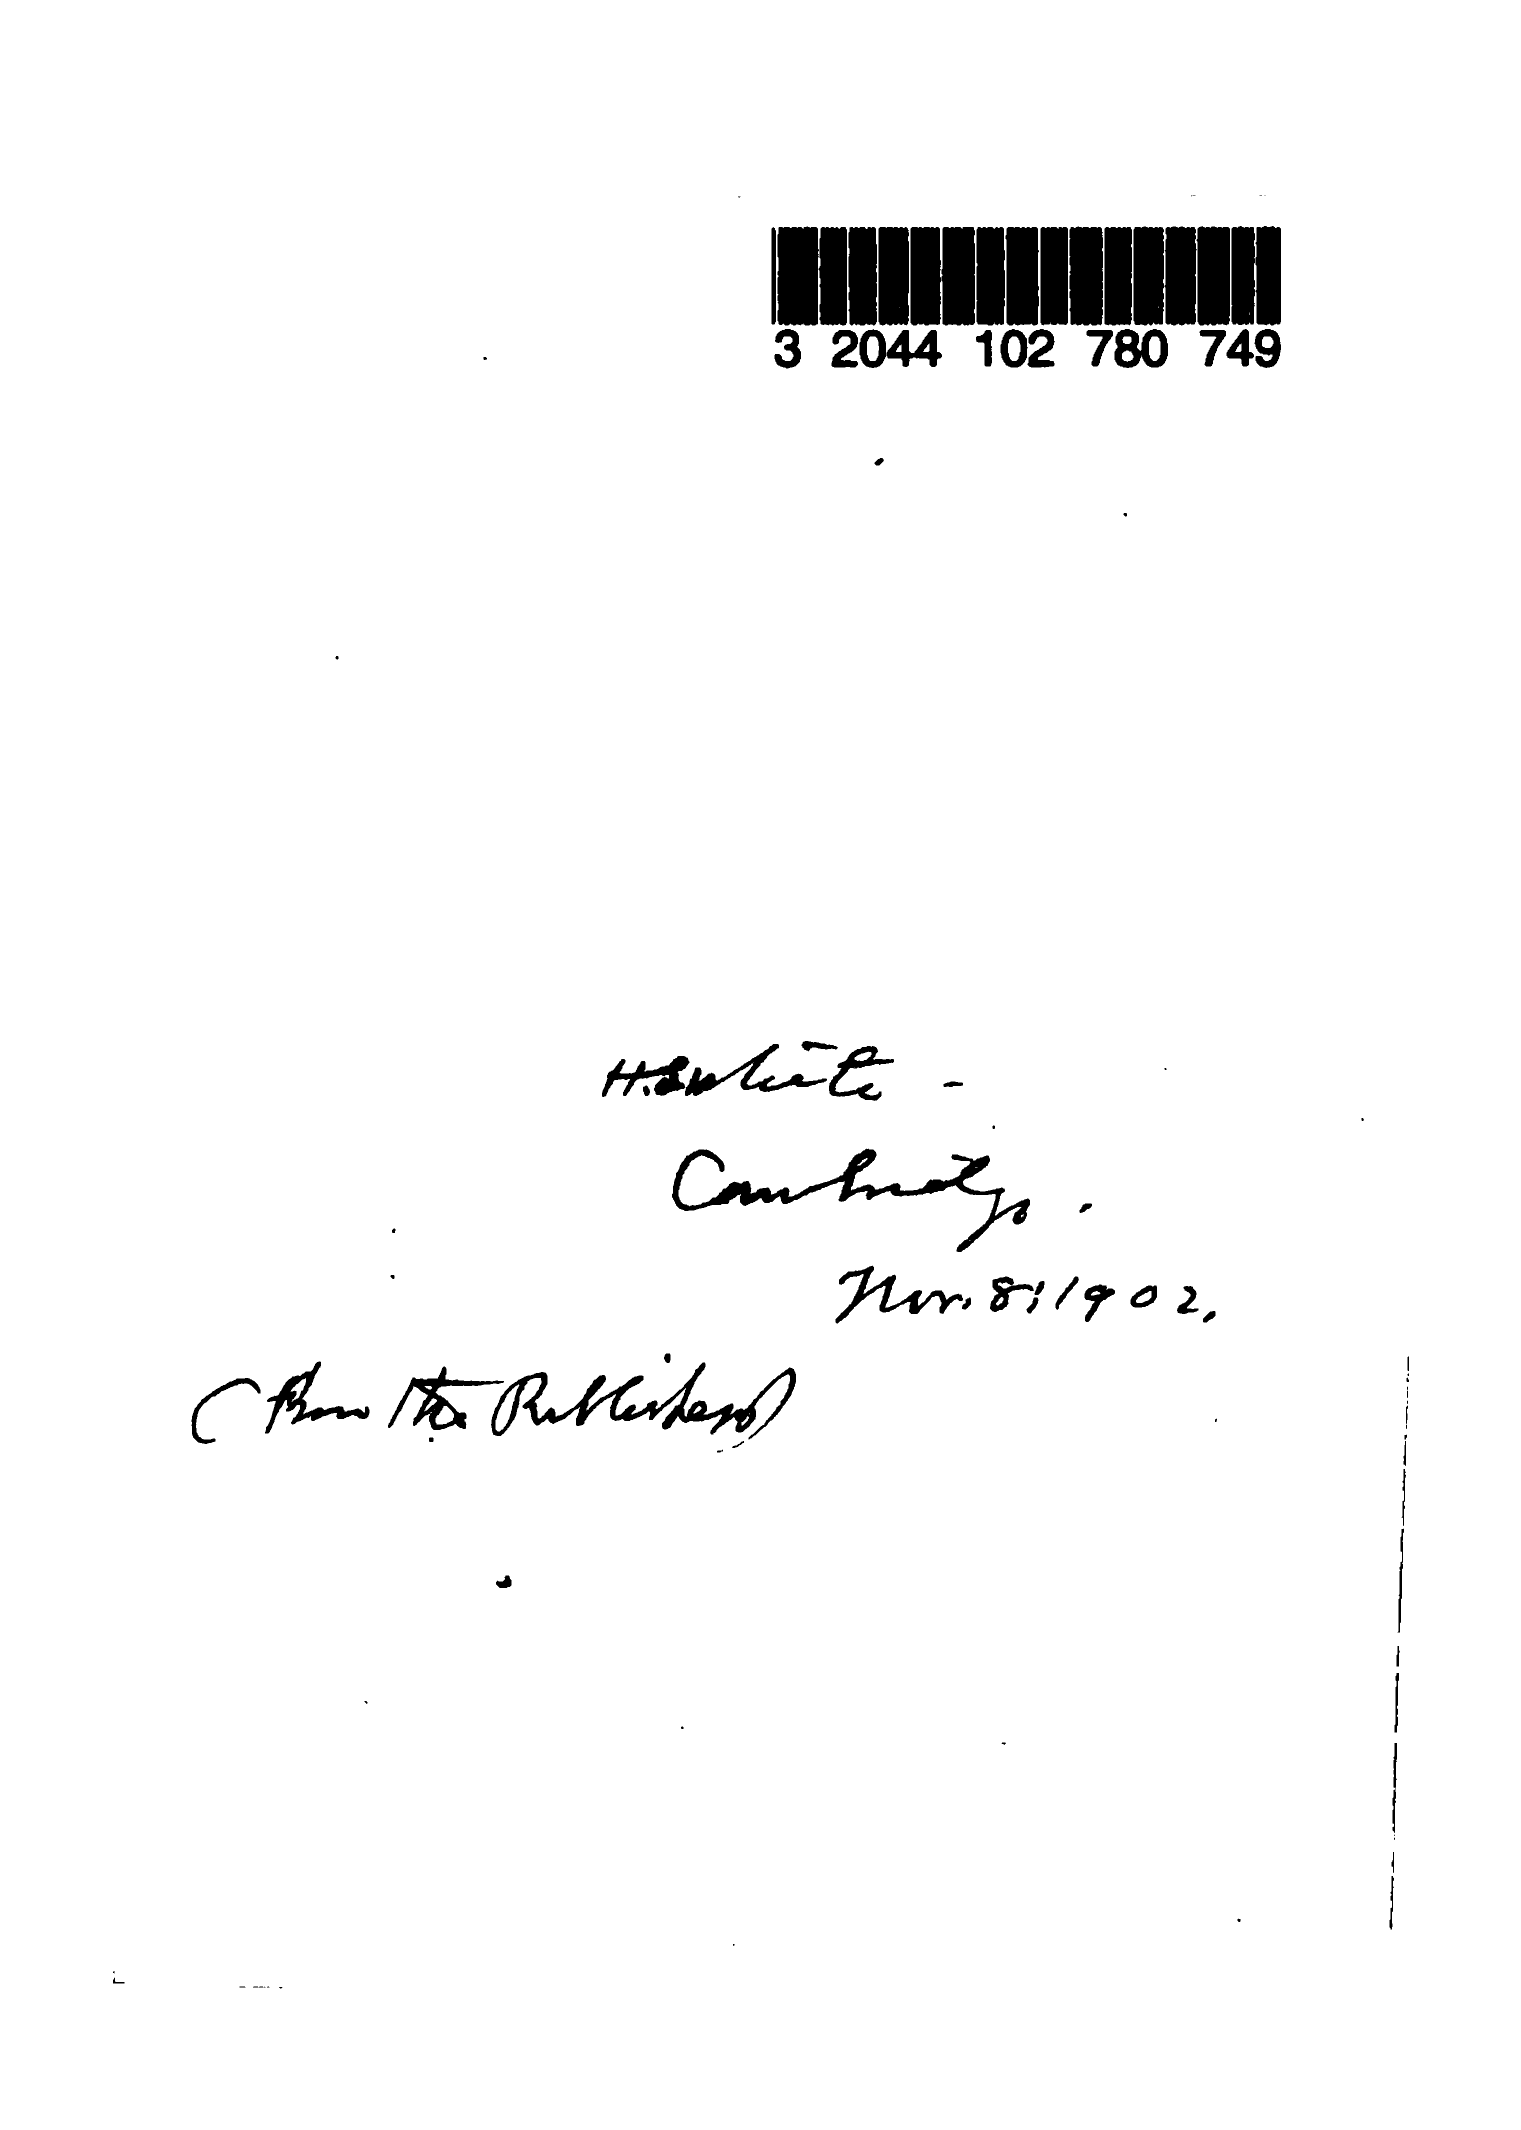 3 2044 102 780 749
H.S. White -
Cambridge.
Nov. 8, 1902.
(From the Publishers)